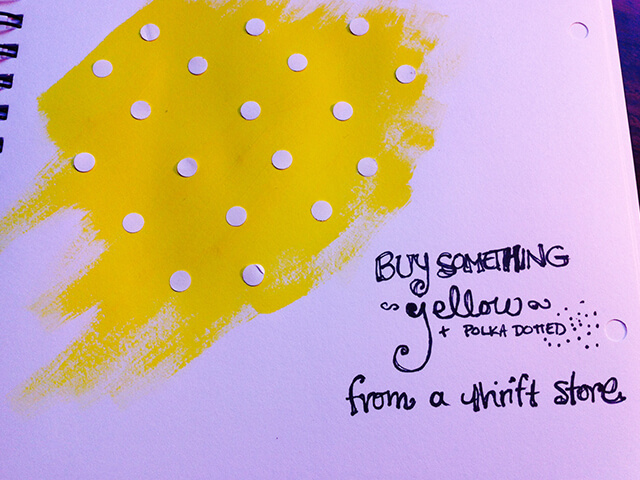 BUY SOMETHING
yellow
+ POLKA DOTTED
from a thrift store